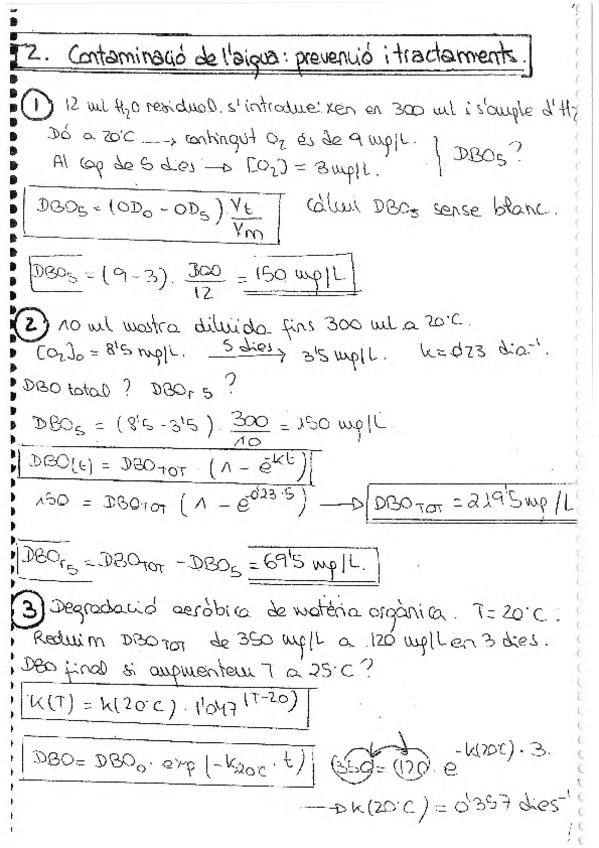 2. Contaminació de l'aigua: prevenció i tractaments.
① 12 ml H2O residual. s'introdueixen en 300 ml i s'omple d'H2
Dó a 20°C → contingut O2 és de 9 mg/L.
Al cap de 5 dies → [O2] = 3 mg/L. } DBO5?
DBO5 = (OD0 - OD5) Vt/Vm càlcul DBO5 sense blanc.
DBO5 = (9-3) · 300/12 = 150 mg/L
② 10 ml mostra diluida fins 300 ml a 20°C.
[O2]0 = 8'5 mg/L. 5 dies → 3'5 mg/L. k=0'23 dia⁻¹.
DBO total? DBOr5?
DBO5 = (8'5-3'5) · 300/10 = 150 mg/L
DBO(t) = DBOTOT · (1 - e^-kt)
150 = DBOTOT (1 - e^-0'23·5) → DBOTOT = 219'5 mg/L
DBOr5 = DBOTOT - DBO5 = 69'5 mg/L.
③ Degradació aeròbica de matèria orgànica. T=20°C:
Reduim DBOTOT de 350 mg/L a 120 mg/L en 3 dies.
DBO final si augmentem T a 25°C?
K(T) = K(20°C) · 1'047^(T-20)
DBO = DBO0 · exp (-k20°C · t) (350) = (120) · e^-k(20°C)·3.
→ k(20°C) = 0'357 dies⁻¹